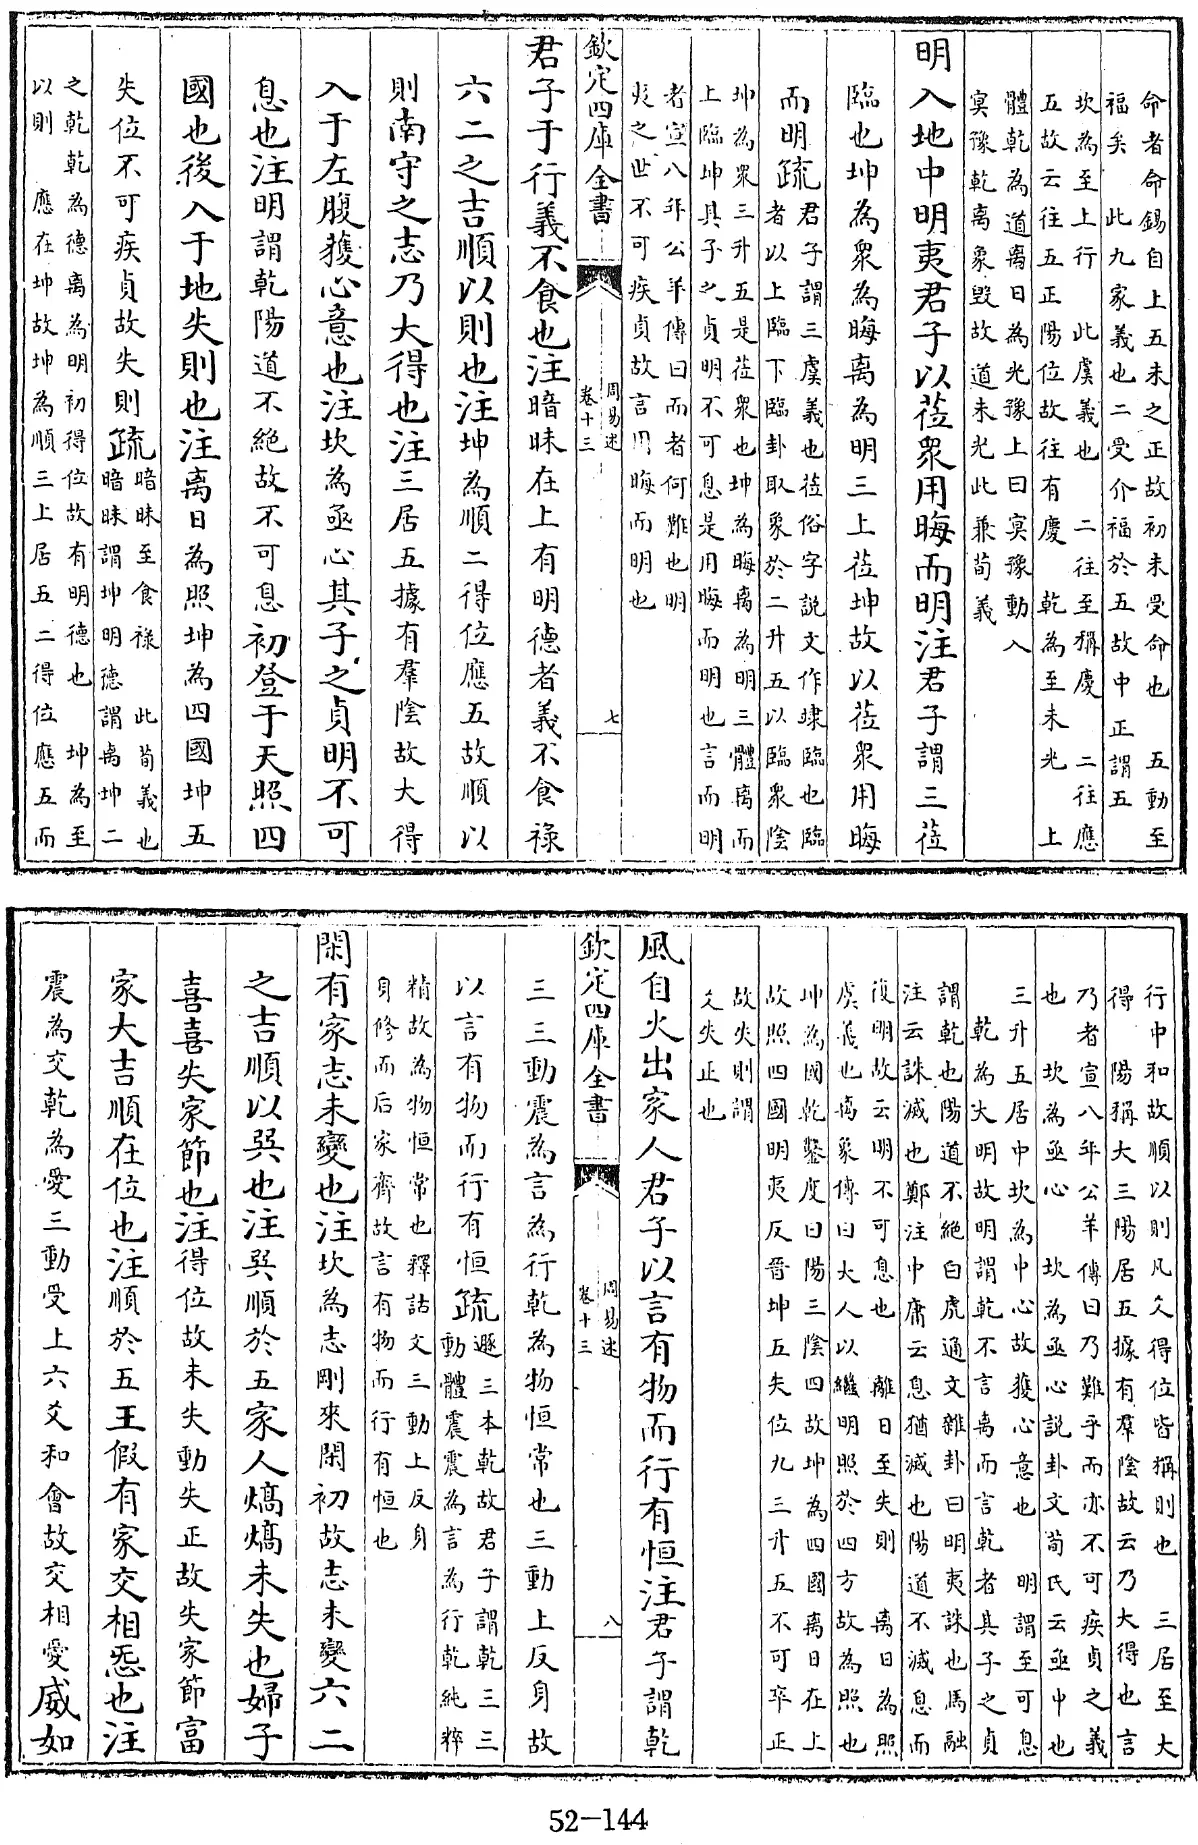 命者命錫自上五未之正故初未受命也　五動至
福矣　此九家義也二受介福於五故中正謂五
坎為至上行　此虞義也　二往至稱慶　二往應
五故云往五正陽位故往有慶　乾為至未光　上
體乾為道離日為光豫上曰冥豫動入
冥豫乾离象毀故道未光此兼荀義
明入地中明夷君子以莅衆用晦而明注君子謂三莅
臨也坤為衆為晦离為明三上莅坤故以莅衆用晦
而明疏君子謂三虞義也莅俗字說文作䇐臨也臨
者以上臨下臨卦取象於二升五以臨衆陰
坤為衆三升五是莅衆也坤為晦离為明三體离而
上臨坤其子之貞明不可息是用晦而明也言而明
者宣八年公羊傳曰而者何難也明
夷之世不可疾貞故言用晦而明也
欽定四庫全書
周易述
卷十三
七
君子于行義不食也注暗昧在上有明德者義不食祿
六二之吉順以則也注坤為順二得位應五故順以
則南守之志乃大得也注三居五據有羣陰故大得
入于左腹獲心意也注坎為亟心其子之貞明不可
息也注明謂乾陽道不絕故不可息初登于天照四
國也後入于地失則也注离日為照坤為四國坤五
失位不可疾貞故失則疏暗昧至食祿　此荀義也
暗昧謂坤明德謂离坤二
之乾乾為德离為明初得位故有明德也　坤為至
以則　應在坤故坤為順三上居五二得位應五而
行中和故順以則凡爻得位皆稱則也　三居至大
得　陽稱大三陽居五據有羣陰故云乃大得也言
乃者宣八年公羊傳曰乃難乎而亦不可疾貞之義
也　坎為亟心　坎為亟心說卦文荀氏云亟中也
三升五居中坎為中心故獲心意也　明謂至可息
乾為大明故明謂乾不言离而言乾者其子之貞
謂乾也陽道不絕白虎通文雜卦曰明夷誅也馬融
注云誅滅也鄭注中庸云息猶滅也陽道不滅息而
復明故云明不可息也　離日至失則　离日為照
虞義也离象傳曰大人以繼明照於四方故為照也
坤為國乾鑿度曰陽三陰四故坤為四國离日在上
故照四國明夷反晉坤五失位九三升五不可卒正
故失則謂
爻失正也
風自火出家人君子以言有物而行有恒注君子謂乾
欽定四庫全書
周易述
卷十三
八
三三動震為言為行乾為物恒常也三動上反身故
以言有物而行有恒疏遯三本乾故君子謂乾三三
動體震震為言為行乾純粹
精故為物恒常也釋詁文三動上反身
身修而后家齊故言有物而行有恒也
閑有家志未變也注坎為志剛來閑初故志未變六二
之吉順以巽也注巽順於五家人熇熇未失也婦子
喜喜失家節也注得位故未失動失正故失家節富
家大吉順在位也注順於五王假有家交相㤅也注
震為交乾為愛三動受上六爻和會故交相愛威如
52-144